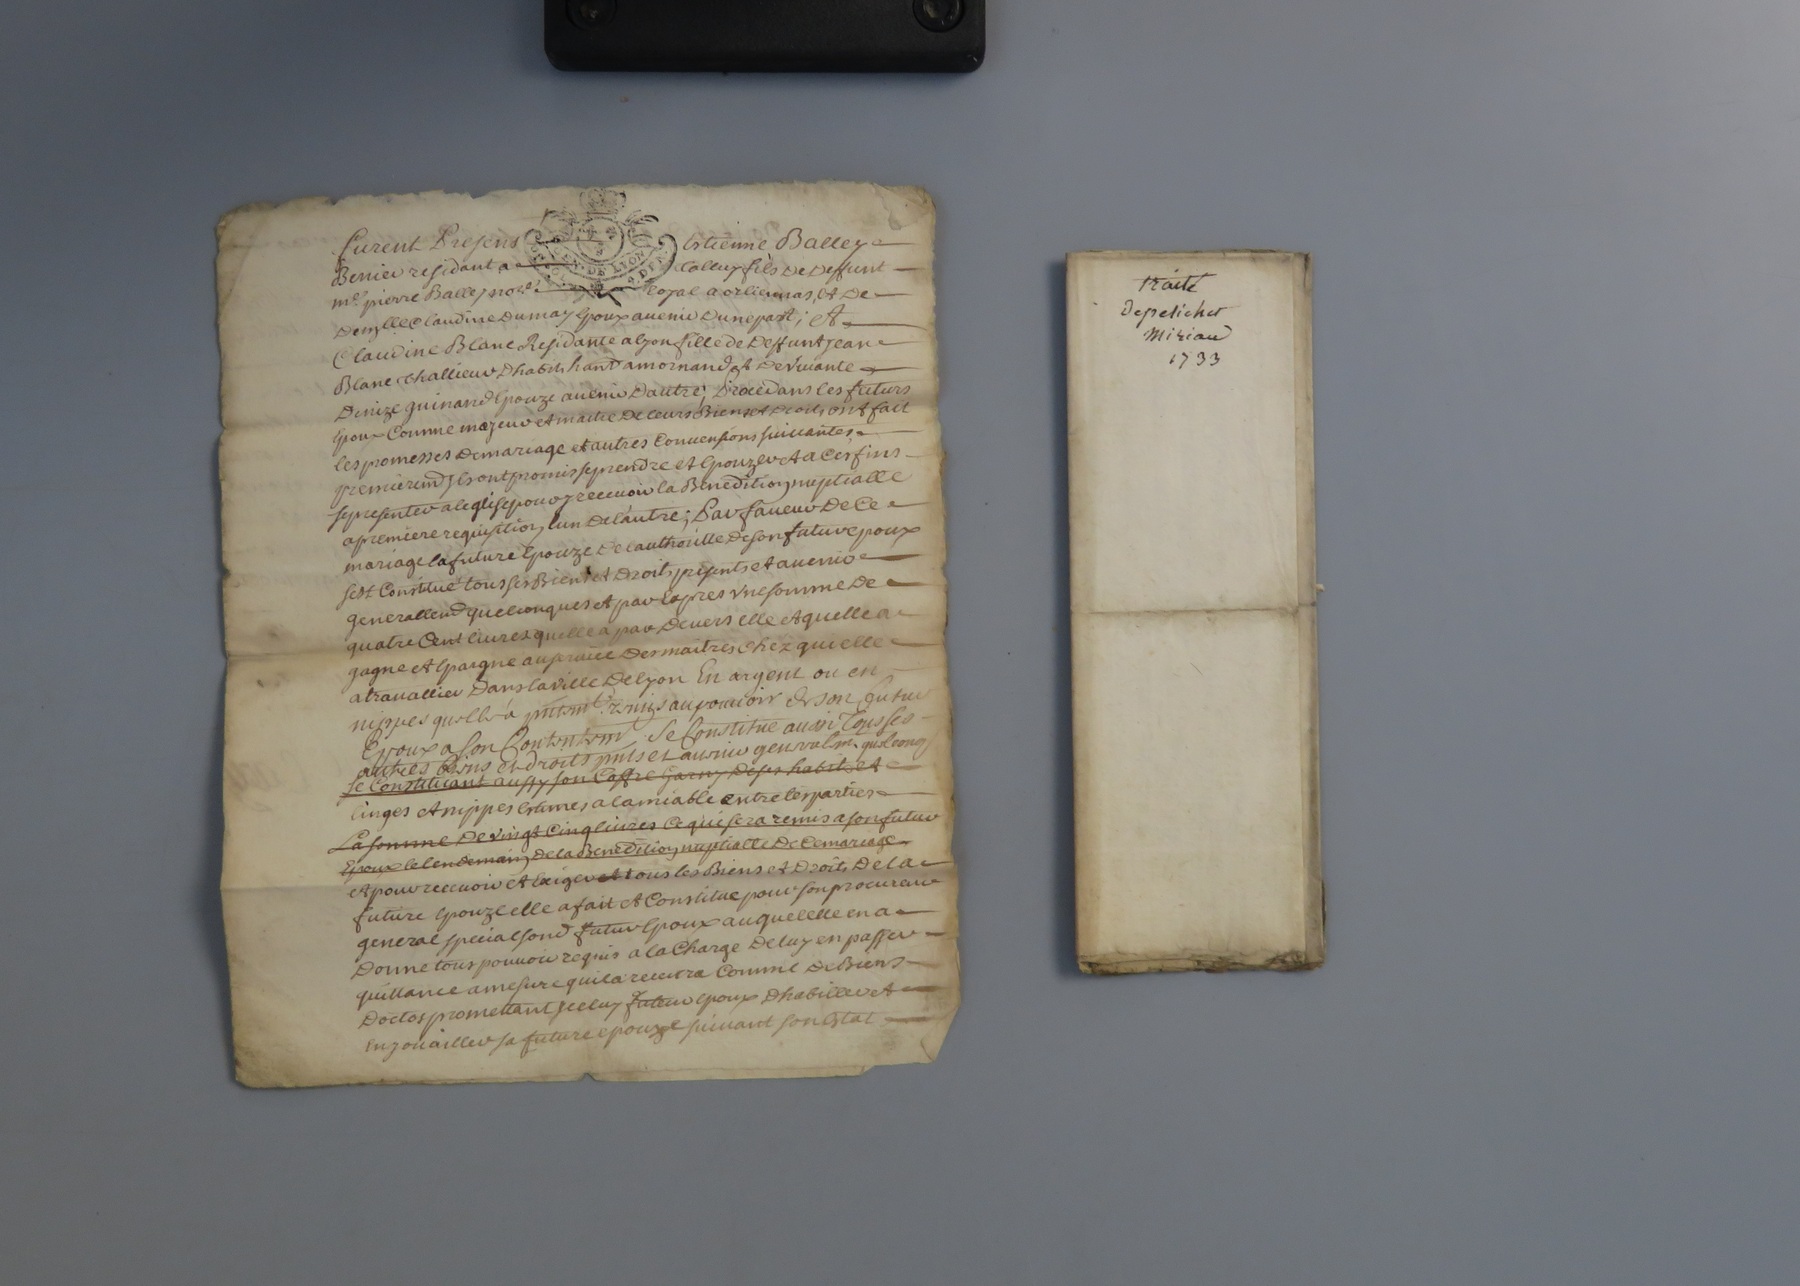 furent presens Estienne Balley
Benier residant a fils de deffunt
me pierre Balley no.re Royal a orlienas, et de
demlle Claudine Dumay Epoux avenir dune part; et
Claudine Blanc Residante a lyon fille de deffunt jean
Blanc dhabit, a mornand, et de vivante
Denize guinand Epouze avenir dautre; procedans les futurs
Epoux Comme majeur et maitre de leurs Biens et droits, ont fait
les promesses de mariage et autres Conventions suivantes
premierem.t ils ont promis se prendre et Epouzer et a Ces fins
se presenter a leglise pour y recevoir la Benedition nuptialle
a premiere requisition lun de lautre; Par faveur de Ce
mariage la future Epouze de lauthorité de son futur epoux
sest Constitué tous ses Biens et droits presents et avenir
generallem.t quelconques et par Expres une somme de
quatre Cent livres quelle a par devers elle et quelle a
gagné et Epargné au service des maitres chez qui elle
a travallier dans la ville de lyon En argent ou en
nippes quelle a remis au pouvoir de son futur
Epoux a son Contentem.t se Constitue aussi Tous ses
autres Biens et droits pnts et avenir generalm.t quelconq.
se Constituant aussy son Coffre garny de ses habits et
linges et nippes Estimés a lamiable entre les parties
La somme de vingt Cinq livres Ce qui sera remis a son futur
Epoux le lendemain de la Benedition nuptialle de Ce mariage
et pour recevoir et Exiger et tous les Biens et droits de la
future Epouze elle a fait et Constitue pour son procureur
general special sond. futur Epoux auquel elle en a
donne tous pouvoir requis a la Charge de luy en passer
quittance a mesure quil a recevra Comme de Biens
doctos promettant iceluy futur Epoux dhabiller et
Enjouailler sa future epouze suivant son Estat
traité
de pelicher
Miziau
1733